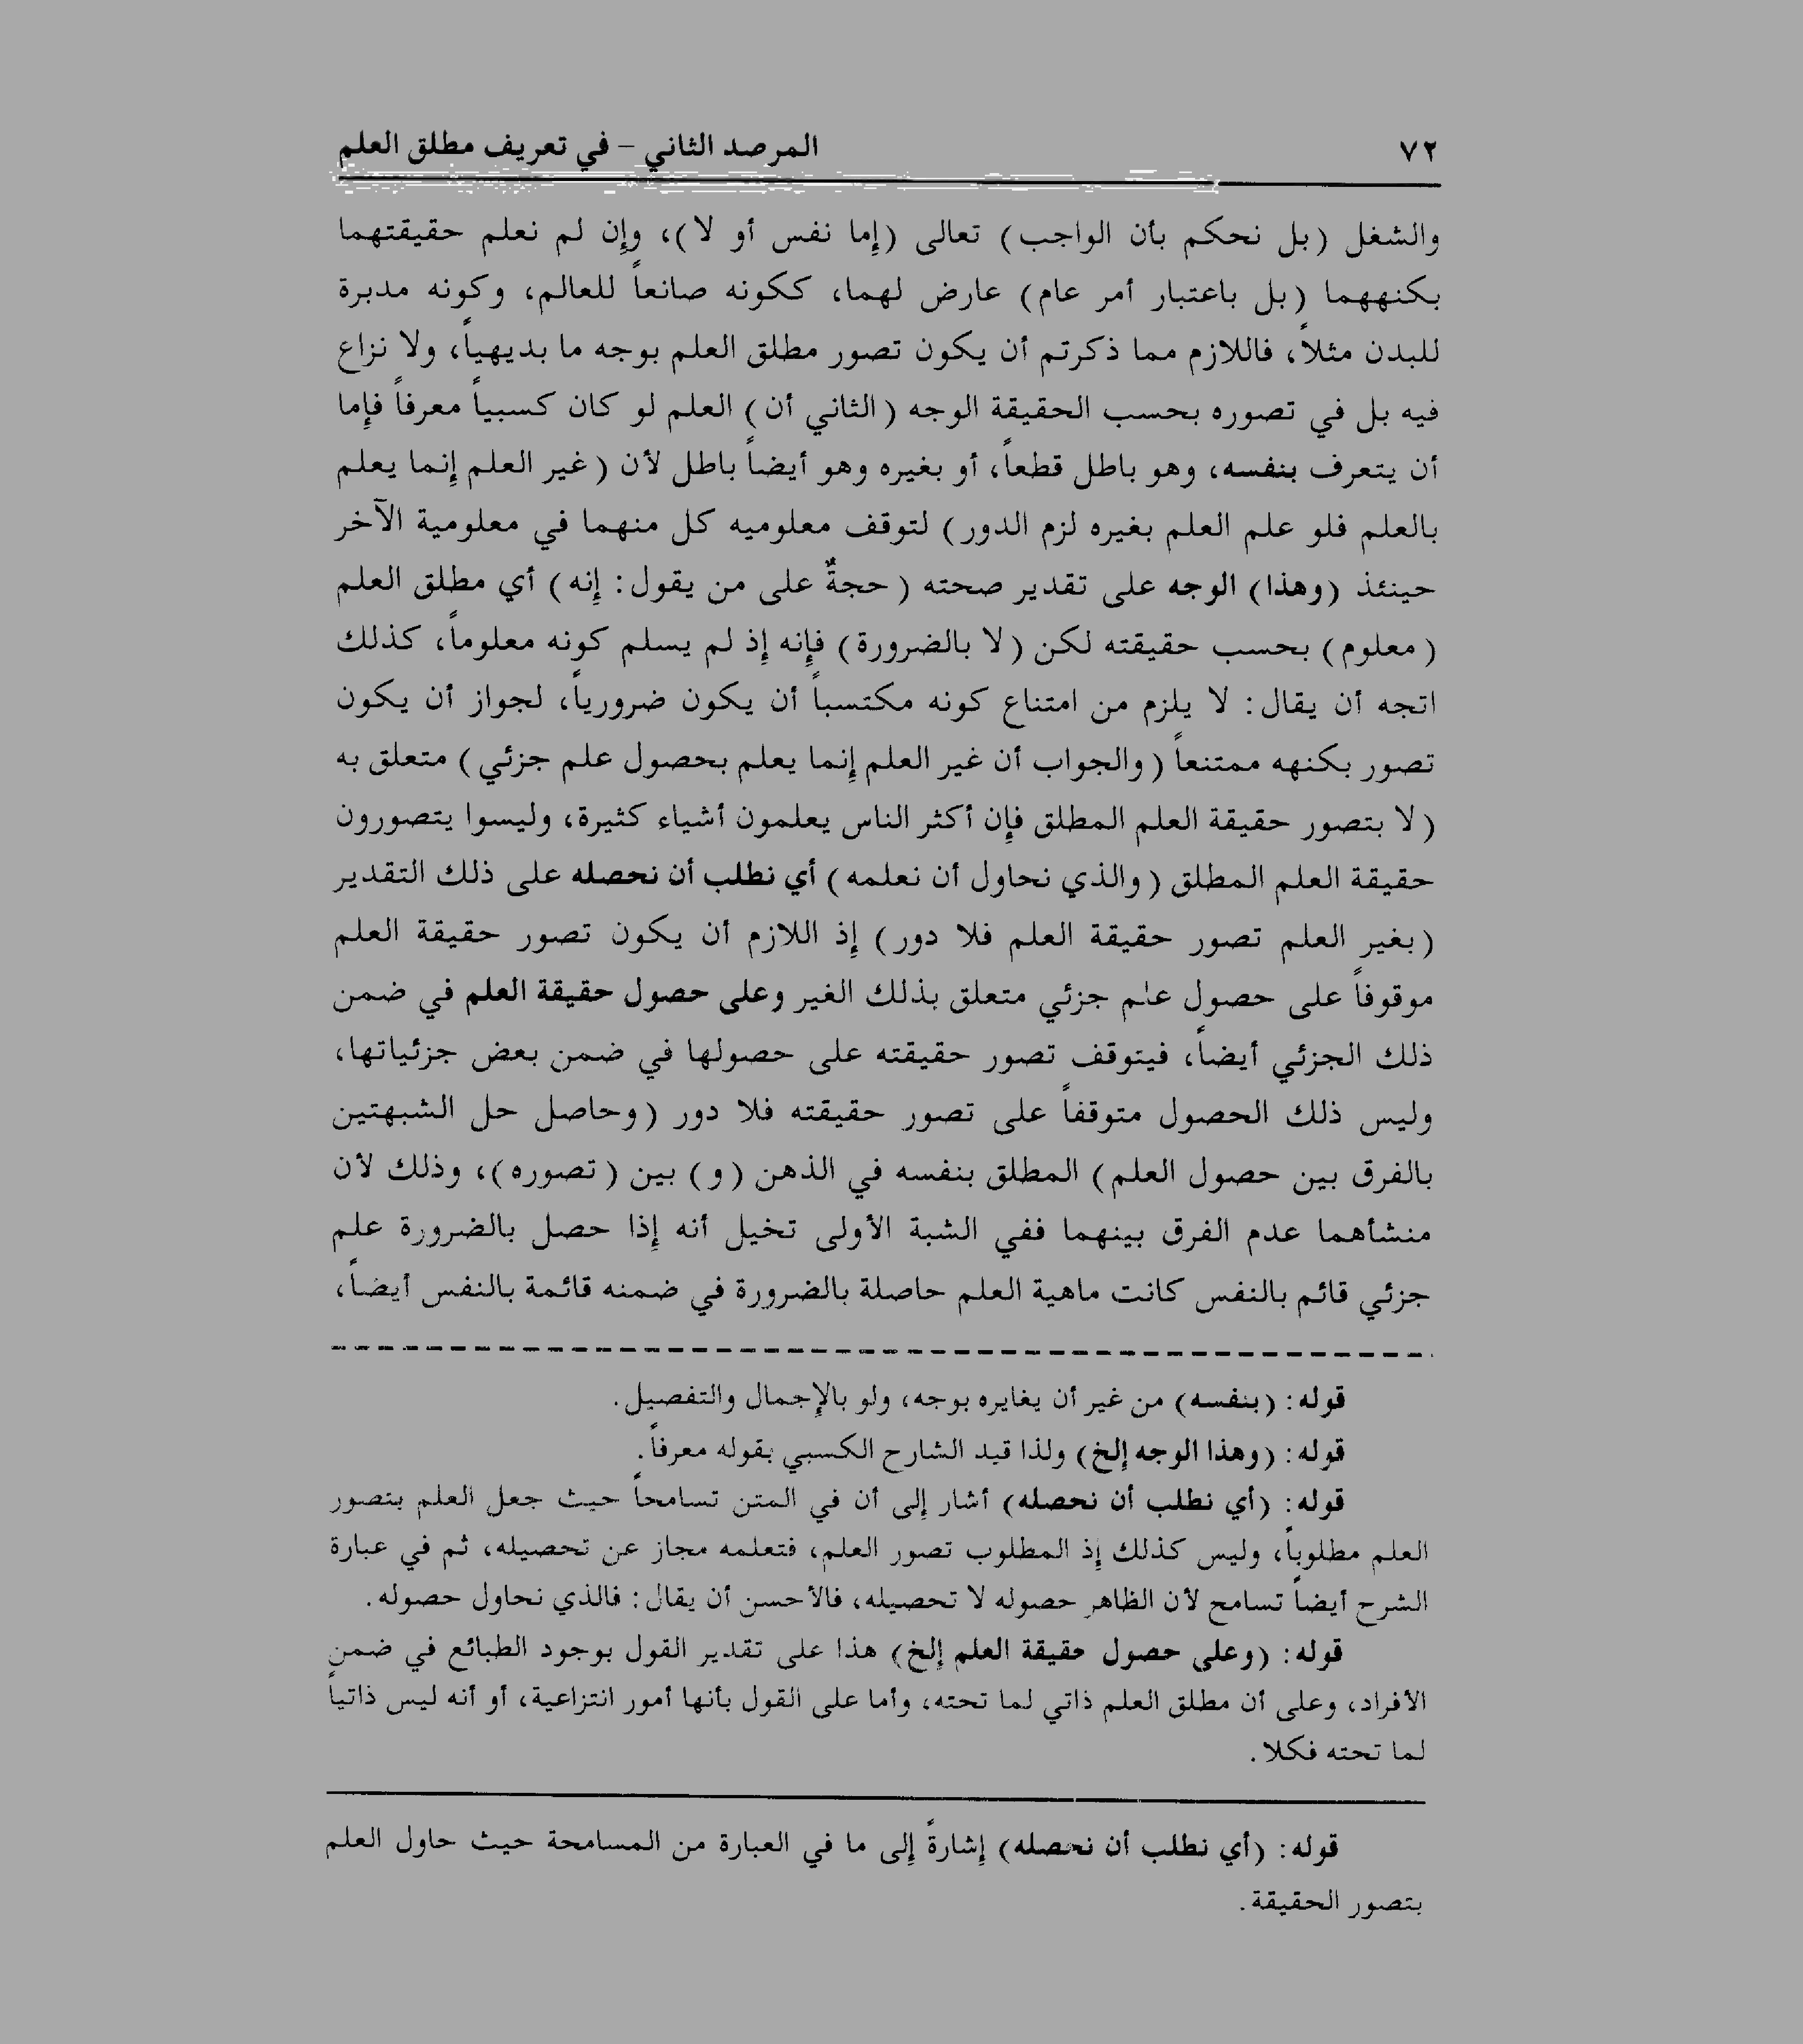 ٧٢
المرصد الثاني – في تعريف مطلق العلم
والشغل (بل نحكم بأن الواجب) تعالى (إما نفس أو لا)، وإن لم نعلم حقيقتهما
بكنههما (بل باعتبار أمر عام) عارض لهما، ككونه صانعاً للعالم، وكونه مدبرة
للبدن مثلاً، فاللازم مما ذكرتم أن يكون تصور مطلق العلم بوجه ما بديهياً، ولا نزاع
فيه بل في تصوره بحسب الحقيقة الوجه (الثاني أن) العلم لو كان كسبياً معرفاً فإما
أن يتعرف بنفسه، وهو باطل قطعاً، أو بغيره وهو أيضاً باطل لأن (غير العلم إنما يعلم
بالعلم فلو علم العلم بغيره لزم الدور) لتوقف معلوميه كل منهما في معلومية الآخر
حينئذ (وهذا) الوجه على تقدير صحته (حجةٌ على من يقول: إنه) أي مطلق العلم
(معلوم) بحسب حقيقته لكن (لا بالضرورة) فإنه إذ لم يسلم كونه معلوماً، كذلك
اتجه أن يقال: لا يلزم من امتناع كونه مكتسباً أن يكون ضرورياً، لجواز أن يكون
تصور بكنهه ممتنعاً (والجواب أن غير العلم إنما يعلم بحصول علم جزئي) متعلق به
(لا بتصور حقيقة العلم المطلق فإن أكثر الناس يعلمون أشياء كثيرة، وليسوا يتصورون
حقيقة العلم المطلق (والذي نحاول أن نعلمه) أي نطلب أن نحصله على ذلك التقدير
(بغير العلم تصور حقيقة العلم فلا دور) إذ اللازم أن يكون تصور حقيقة العلم
موقوفاً على حصول علم جزئي متعلق بذلك الغير وعلى حصول حقيقة العلم في ضمن
ذلك الجزئي أيضاً، فيتوقف تصور حقيقته على حصولها في ضمن بعض جزئياتها،
وليس ذلك الحصول متوقفاً على تصور حقيقته فلا دور (وحاصل حل الشبهتين
بالفرق بين حصول العلم) المطلق بنفسه في الذهن (و) بين (تصوره)، وذلك لأن
منشأهما عدم الفرق بينهما ففي الشبة الأولى تخيل أنه إذا حصل بالضرورة علم
جزئي قائم بالنفس كانت ماهية العلم حاصلة بالضرورة في ضمنه قائمة بالنفس أيضاً،
قوله: (بنفسه) من غير أن يغايره بوجه، ولو بالإجمال والتفصيل.
قوله: (وهذا الوجه إلخ) ولذا قيد الشارح الكسبي بقوله معرفاً.
قوله: (أي نطلب أن نحصله) أشار إلى أن في المتن تسامحاً حيث جعل العلم بتصور
العلم مطلوباً، وليس كذلك إذ المطلوب تصور العلم، فتعلمه مجاز عن تحصيله، ثم في عبارة
الشرح أيضاً تسامح لأن الظاهر حصوله لا تحصيله، فالأحسن أن يقال: فالذي نحاول حصوله.
قوله: (وعلى حصول حقيقة العلم إلخ) هذا على تقدير القول بوجود الطبائع في ضمن
الأفراد، وعلى أن مطلق العلم ذاتي لما تحته، وأما على القول بأنها أمور انتزاعية، أو أنه ليس ذاتياً
لما تحته فكلا.
قوله: (أي نطلب أن نحصله) إشارةً إلى ما في العبارة من المسامحة حيث حاول العلم
بتصور الحقيقة.